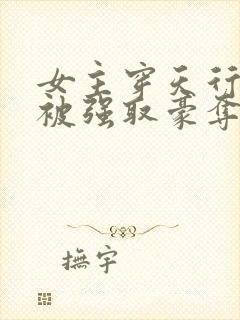 女主穿天行
被强取豪夺
撫宇